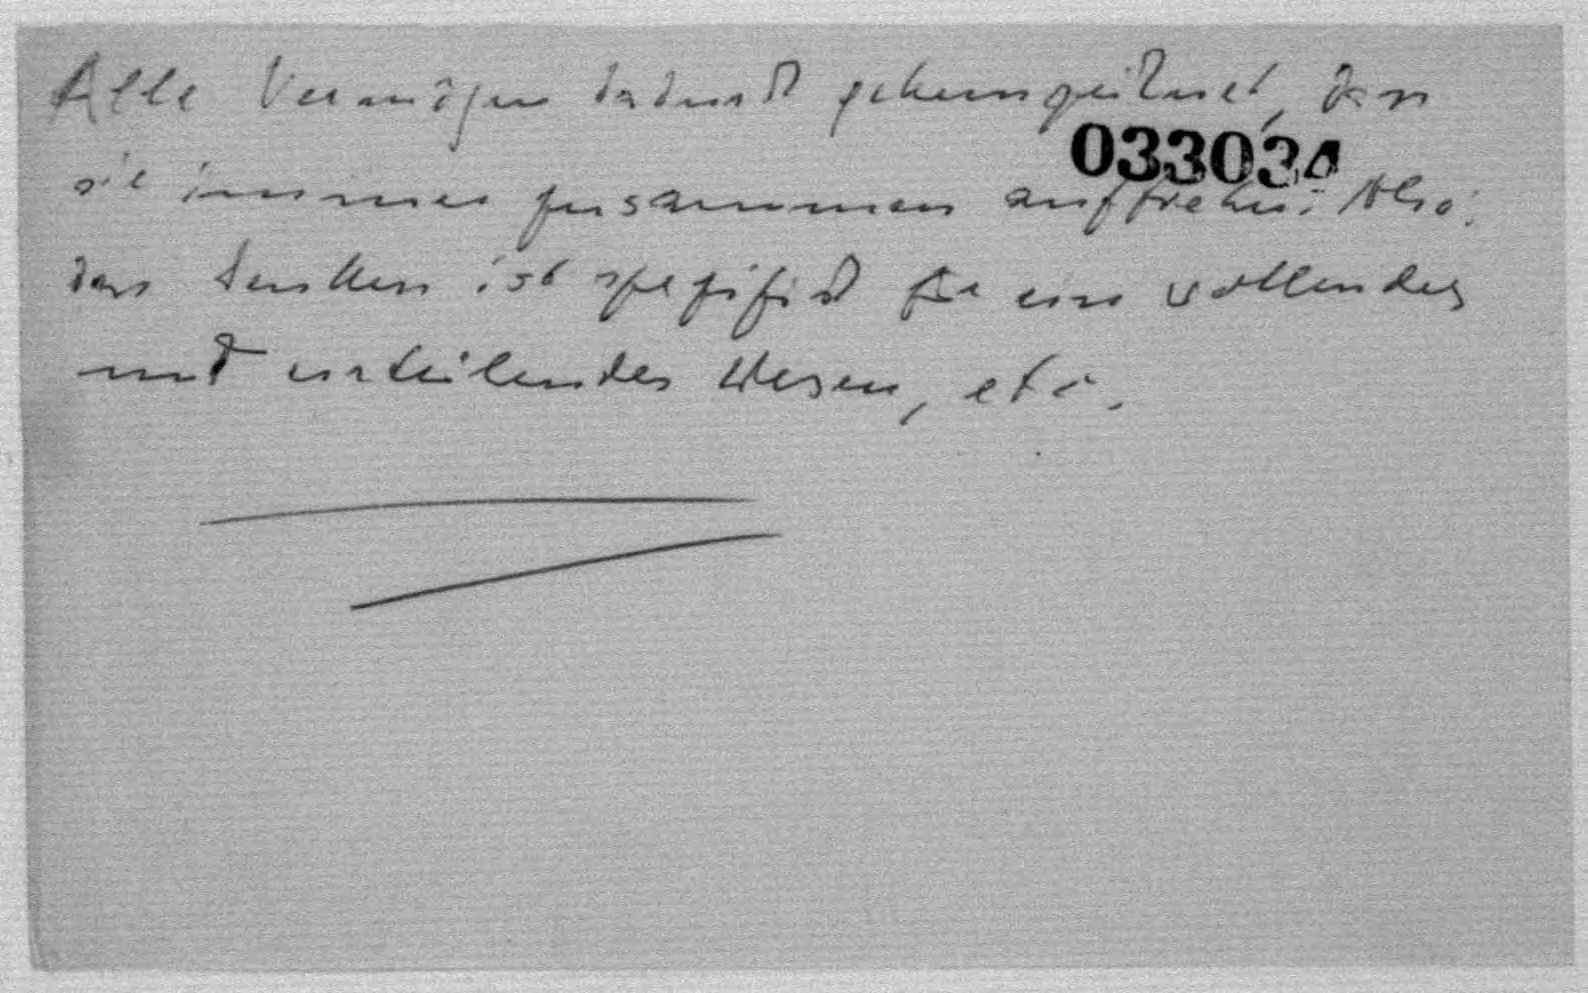 Alle Vermögen dadurch gekennzeichnet, dass
033034
sie immer zusammen auftreten: Also:
das Denken ist spezifisch für ein wollendes
und urteilendes Wesen, etc.